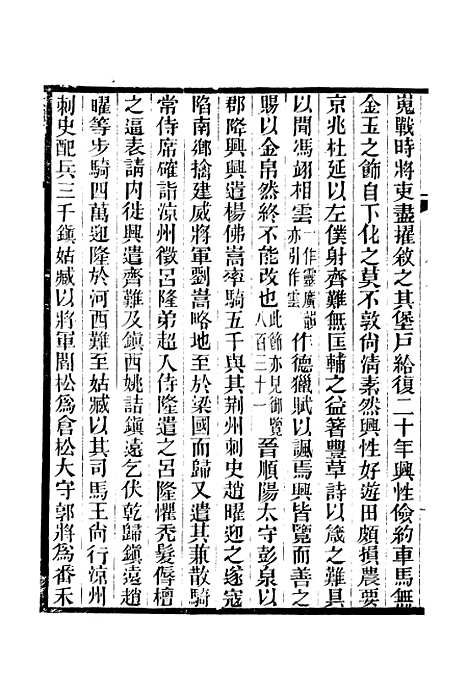 嵬戰時將吏盡擢敘之其堡戸給復二十年興性儉約車馬無
金玉之飾自下化之莫不敦尚清素然興性好遊田頗損農要
京兆杜延以左僕射齊難無匡輔之益著豐草詩以箴之難具
以聞馮翊相雲一作靈廣韵亦引作雲作德獵賦以諷焉興皆覽而善之
賜以金帛然終不能改也此節亦見御覽八百三十一晉順陽太守彭泉以
郡降興興遣楊佛嵩率騎五千與其荆州刺史趙曜迎之遂寇
陷南鄉擒建威將軍劉嵩略地至於梁國而歸又遣其兼散騎
常侍席確詣涼州徵呂隆弟超入侍隆遣之呂隆懼禿髮傉檀
之逼表請内徙興遣齊難及鎮西姚詰鎮遠乞伏乾歸鎮遠趙
曜等步騎四萬迎隆於河西難至姑臧以其司馬王尚行涼州
刺史配兵三千鎮姑臧以將軍閻松爲倉松太守郭將爲番禾